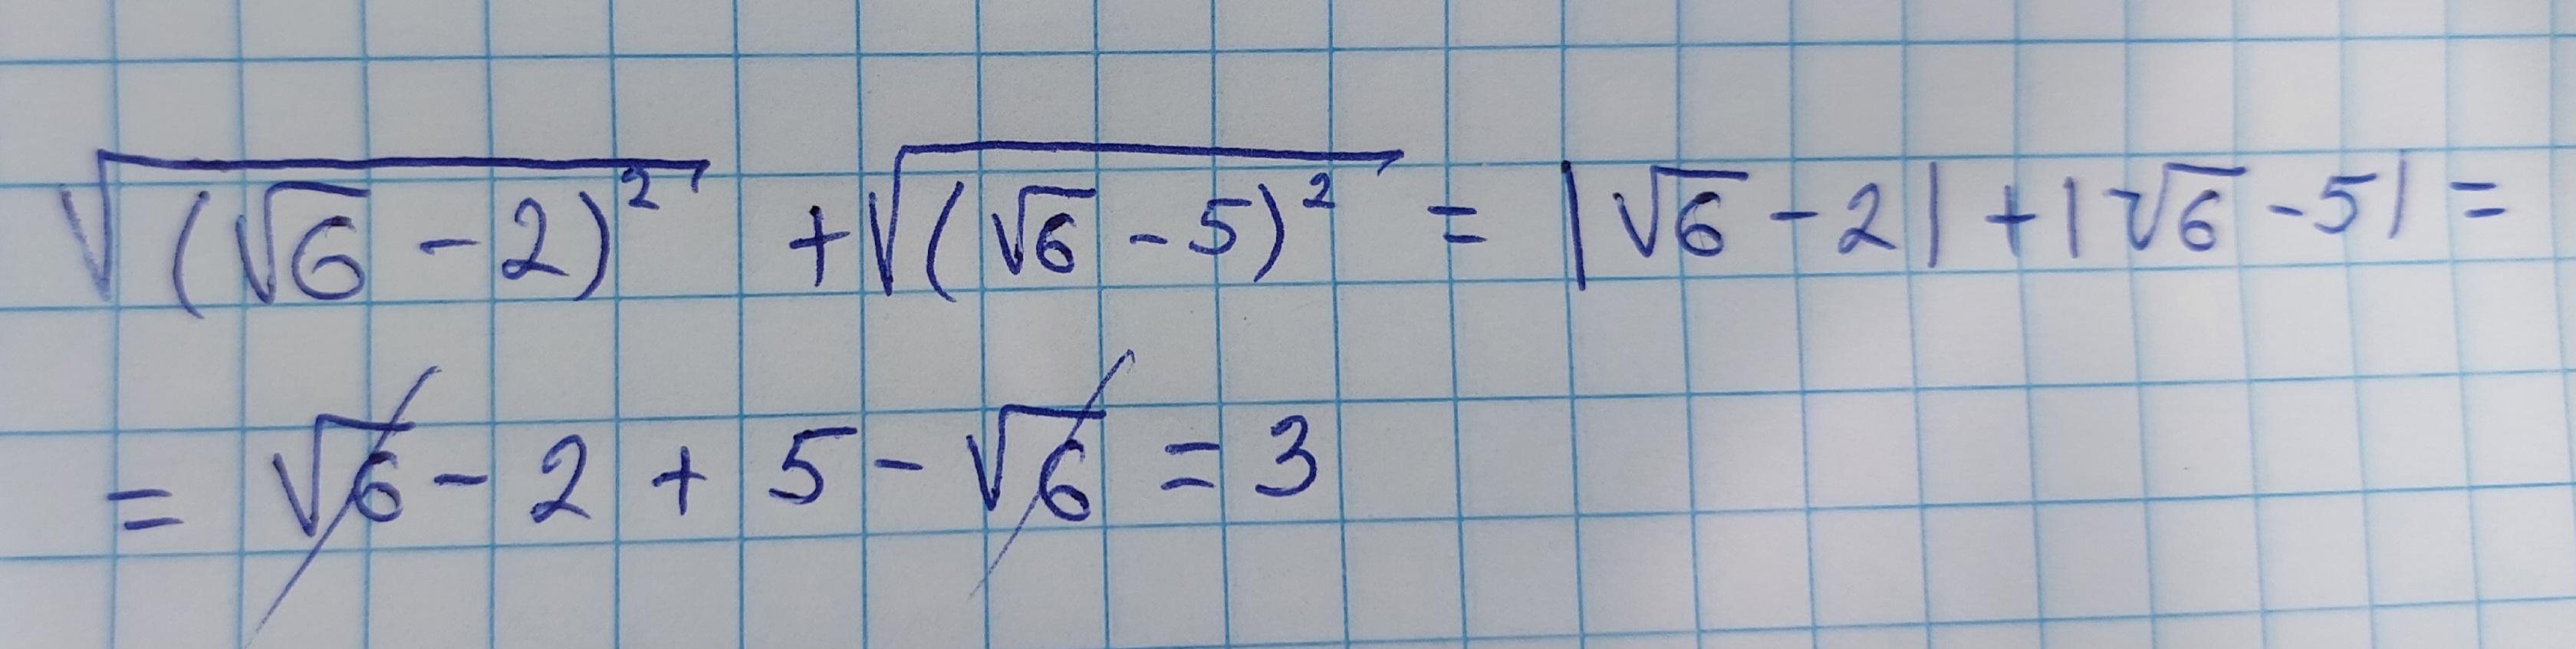 √((√6 - 2)²) + √((√6 - 5)²) = |√6 - 2| + |√6 - 5| =
= √6 - 2 + 5 - √6 = 3